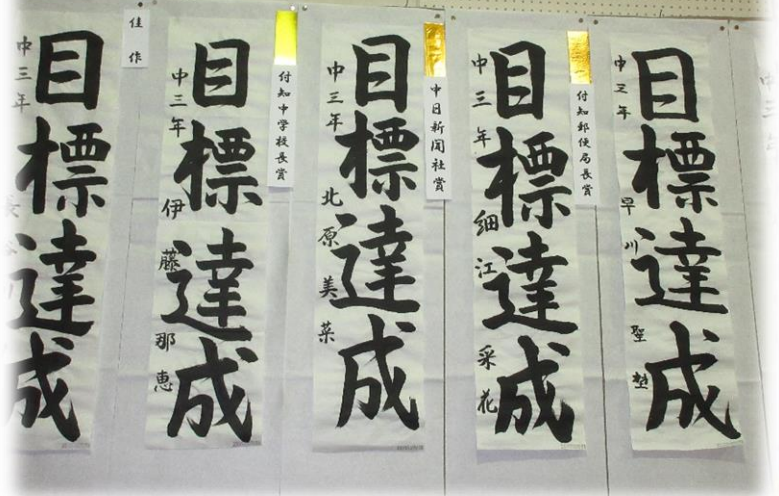 目標達成
中三年 早川聖
付知郵便局長賞
目標達成
中三年 細江采花
中日新聞社賞
目標達成
中三年 北原美菜
付知中学校長賞
目標達成
中三年 伊藤那恵
佳作
目標達成
中三年